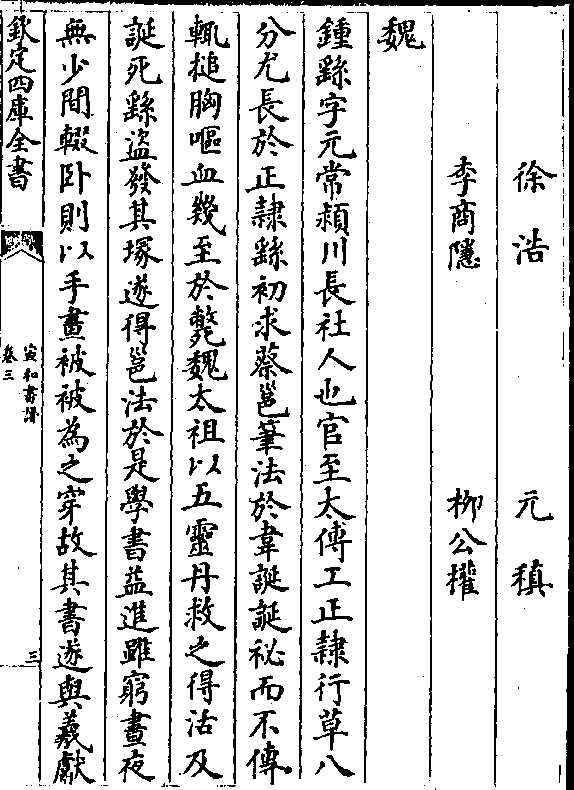 徐浩　元稹
李商隱　柳公權
魏
鍾繇字元常潁川長社人也官至太傅工正隷行草八
分尤長於正隷繇初求蔡邕筆法於韋誕誕祕而不傳
輒槌胸嘔血幾至於斃魏太祖以五靈丹救之得活及
誕死繇盜發其塚遂得邕法於是學書益進雖窮晝夜
無少間輟卧則以手畫被被為之穿故其書遂與羲獻
欽定四庫全書
宣和書譜
卷三
三